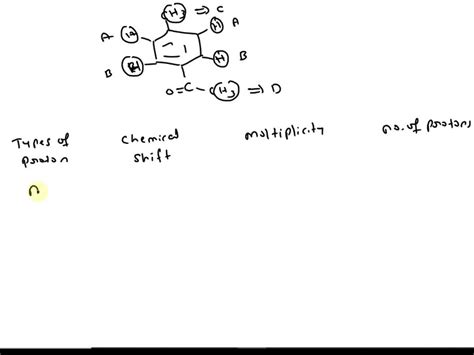 CH3 ⇒ C
A H H A
B H H B
O=C-CH3 ⇒ D
Types of chemical multiplicity no. of protons
proton shift